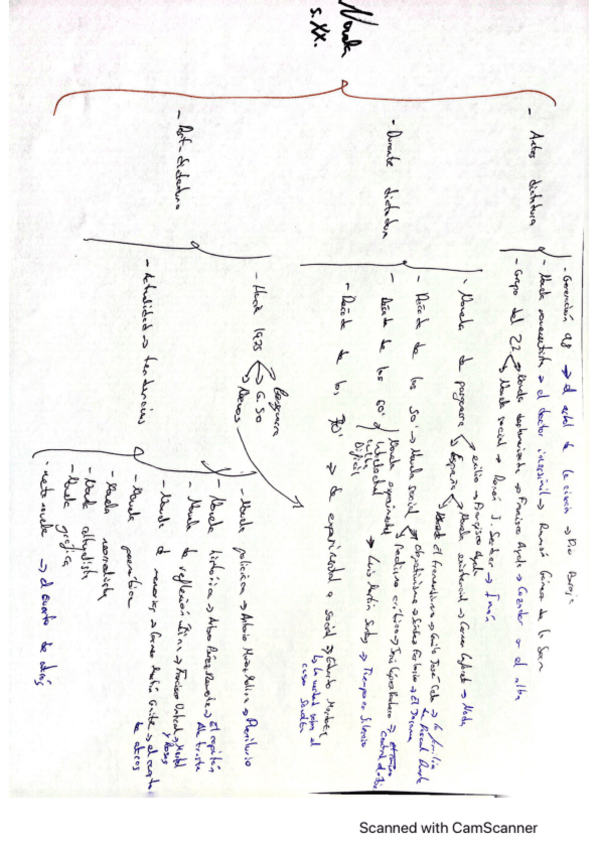 Novela
s. XX.
- Antes dictadura
- Generación 98 → el árbol de la ciencia → Pío Baroja
- Novela vanguardista → el doctor inverosímil → Ramón Gómez de la Serna
- Grupo del 27
Novela deshumanizada → Francisco Ayala → Cazador en el alba
Novela social → Ramón J. Sender → Imán
- Durante dictadura
- Novela de posguerra
exilio → Francisco Ayala
España
Novela existencial → Carmen Laforet → Nada
Novela tremendismo → Camilo José Cela → la familia de Pascual Duarte
- Década de los 50' → Novela social
objetivismo → Sánchez Ferlosio → El Jarama
realismo crítico →
- Década de los 60'
Novela experimental
intelectual
culta
Difícil
→ Luis Martín Santos → Tiempo de Silencio
- Década de los 70' → de experimental a social → Eduardo Mendoza
↳ la verdad sobre el caso Savolta
- Post-dictadura
- Desde 1975
Posguerra
G. 50
Nuevos
- Actualidad → tendencias
- Novela policíaca → Antonio Muñoz Molina → Plenilunio
- Novela histórica → Arturo Pérez Reverte → El capitán Alatriste
- Novela de reflexión íntima → Francisco Umbral → Mortal y Rosa
- Novela de memorias → Carmen Martín Gaite → el cuarto de atrás
- Novela
- Novela neorrealista
- Novela
- Novela gráfica
- metanovela → el cuarto de atrás
Scanned with CamScanner